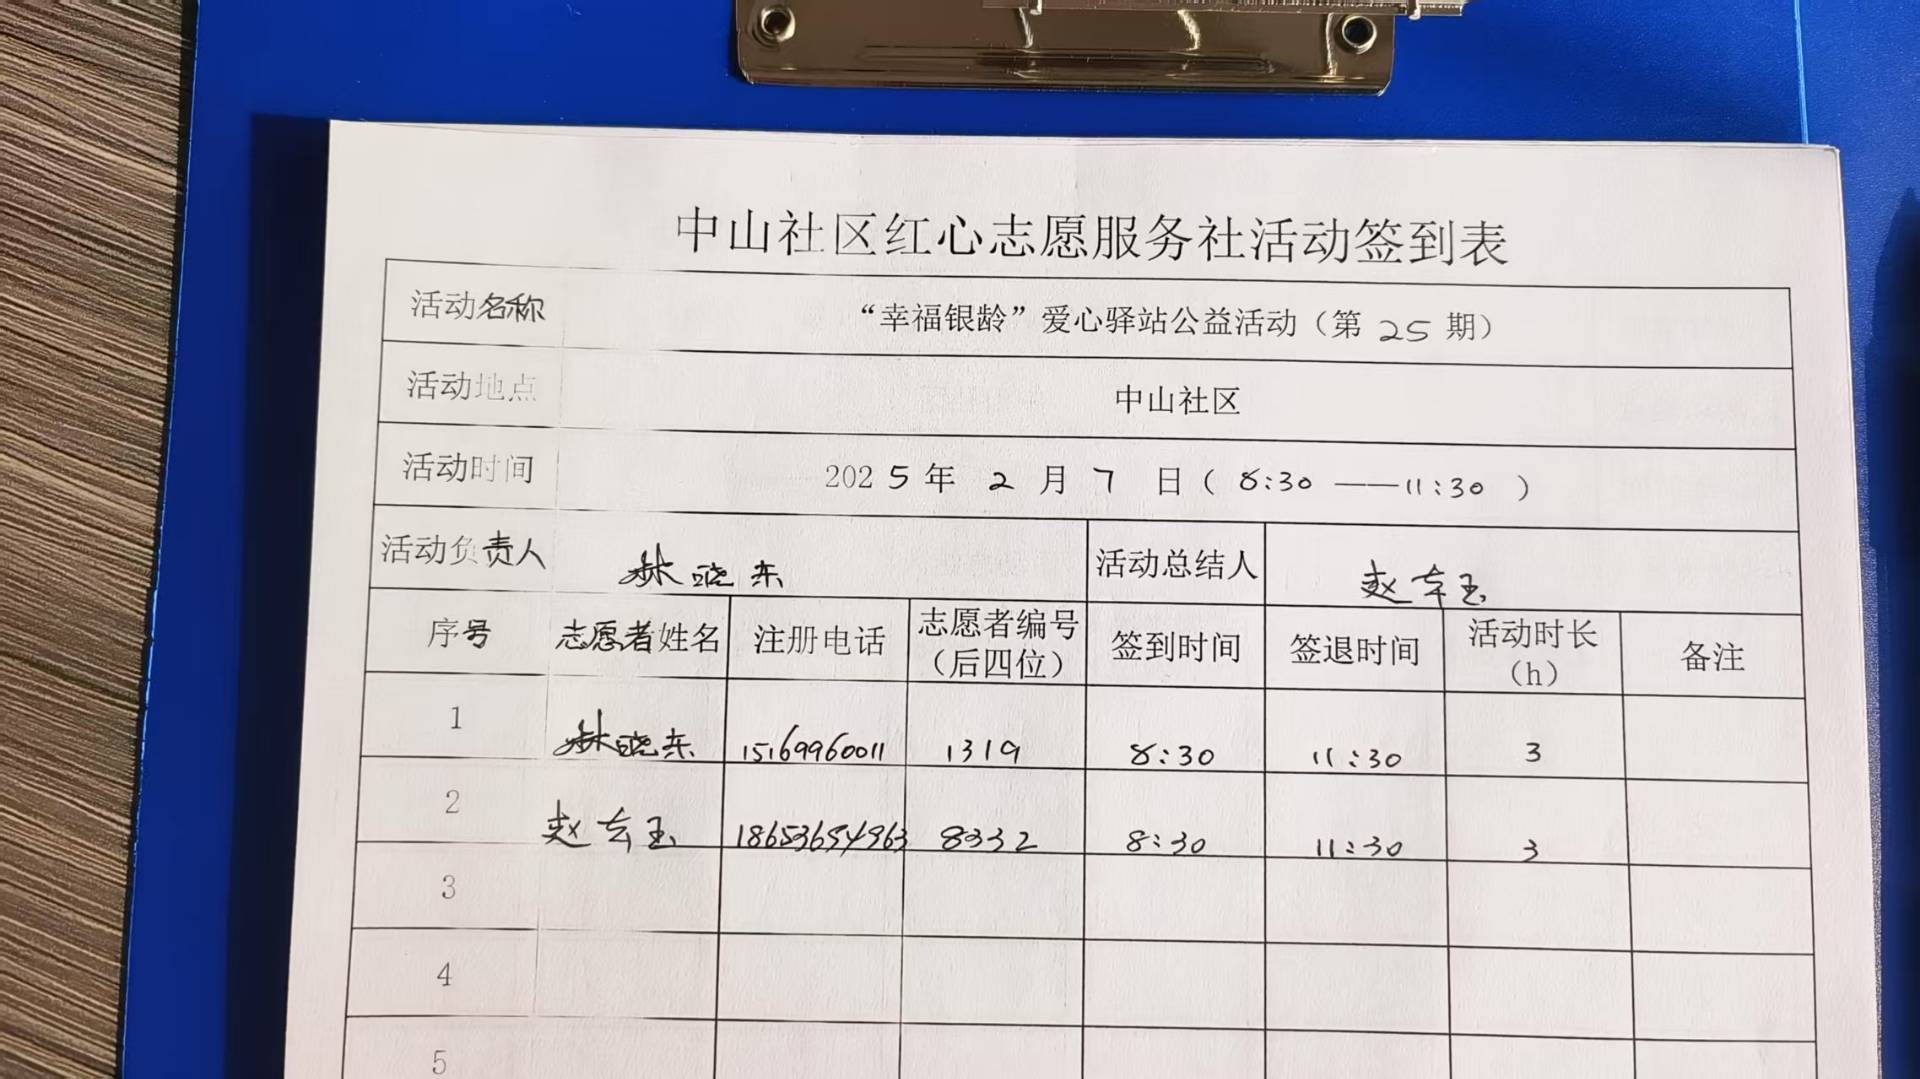 中山社区红心志愿服务社活动签到表
活动名称 “幸福银龄”爱心驿站公益活动（第 25 期）
活动地点 中山社区
活动时间 2025年 2 月 7 日（8:30 ——11:30 ）
活动负责人 林晓东 活动总结人 赵玄玉
序号 志愿者姓名 注册电话 志愿者编号（后四位） 签到时间 签退时间 活动时长（h） 备注
1 林晓东 15169960011 1319 8:30 11:30 3
2 赵玄玉 18653654963 8332 8:30 11:30 3
3
4
5